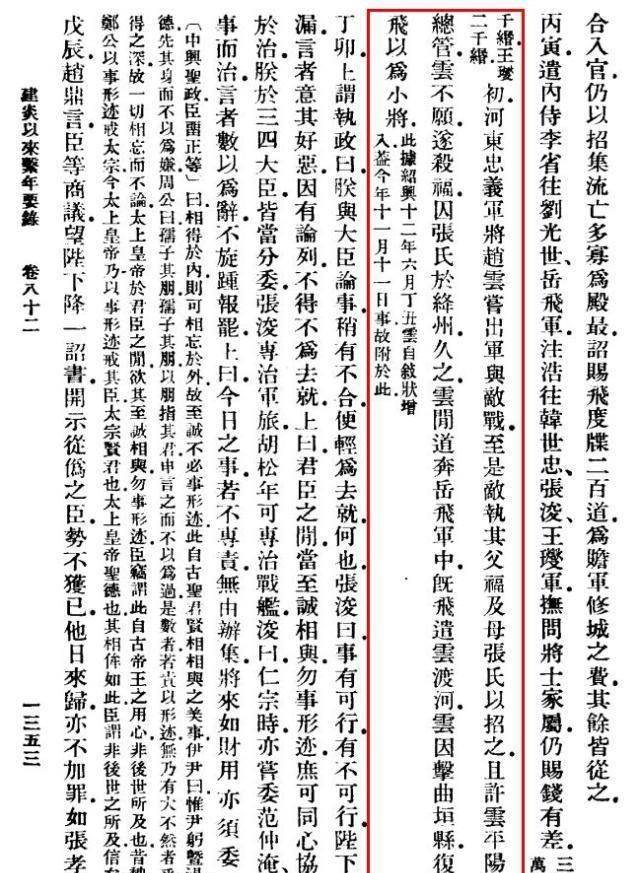 合入官仍以招集流亡多寡爲殿最詔賜飛度牒二百道爲贍軍修城之費其餘皆從之
丙寅遣內侍李省往劉光世、岳飛軍汪浩往韓世忠、張浚、王𤫉軍撫問將士家屬仍賜錢有差三萬
千緡王𤫉二千緡初河東忠義軍將趙雲嘗出軍與敵戰至是敵執其父福及母張氏以招之且許雲平陽
總管雲不願遂殺福囚張氏於絳州久之雲閒道奔岳飛軍中旣飛遣雲渡河雲因擊曲垣縣復
飛以爲小將此據紹興十二年六月丁丑雲自敘狀增入益今年十一月十一日事故附於此
丁卯上謂執政曰朕與大臣論事稍有不合便輕爲去就何也張浚曰事有可行有不可行陛下
漏言者意其好惡因有論列不得不爲去就上曰君臣之閒當至誠相與勿事形迹庶可同心協
於治朕於三四大臣皆當分委張浚專治軍旅胡松年可專治戰艦浚曰仁宗時亦嘗委范仲淹、
事而治言者數以爲辭不旋踵報罷上曰今日之事若不專責無由辦集將來如財用亦須委
〔中興聖政臣畱正等〕曰相得於內則可相忘於外故至誠不必事形迹此自古聖君賢相相與之美事伊尹曰惟尹躬曁湯
德先其身而不以爲嫌周公曰孺子其朋孺子其朋以朋指其君申言之而不以爲過是數者若責以形迹無乃有大不然者乎
得之深故一切相忘而不論太上皇帝於君臣之閒欲其至誠相與勿事形迹臣竊謂此自古帝王之用心非後世所及也昔
鄭公以事形迹戒太宗今太上皇帝乃以事形迹戒其臣太宗賢君也太上皇帝聖德也其相侔如此臣謂非後世之所及信
戊辰趙鼎言臣等商議望陛下降一詔書開示從僞之臣勢不獲已他日來歸亦不加罪如張孝
建炎以來繫年要錄 卷八十二
一三五三